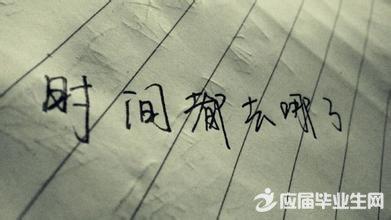 时间都去哪了
应届毕业生网